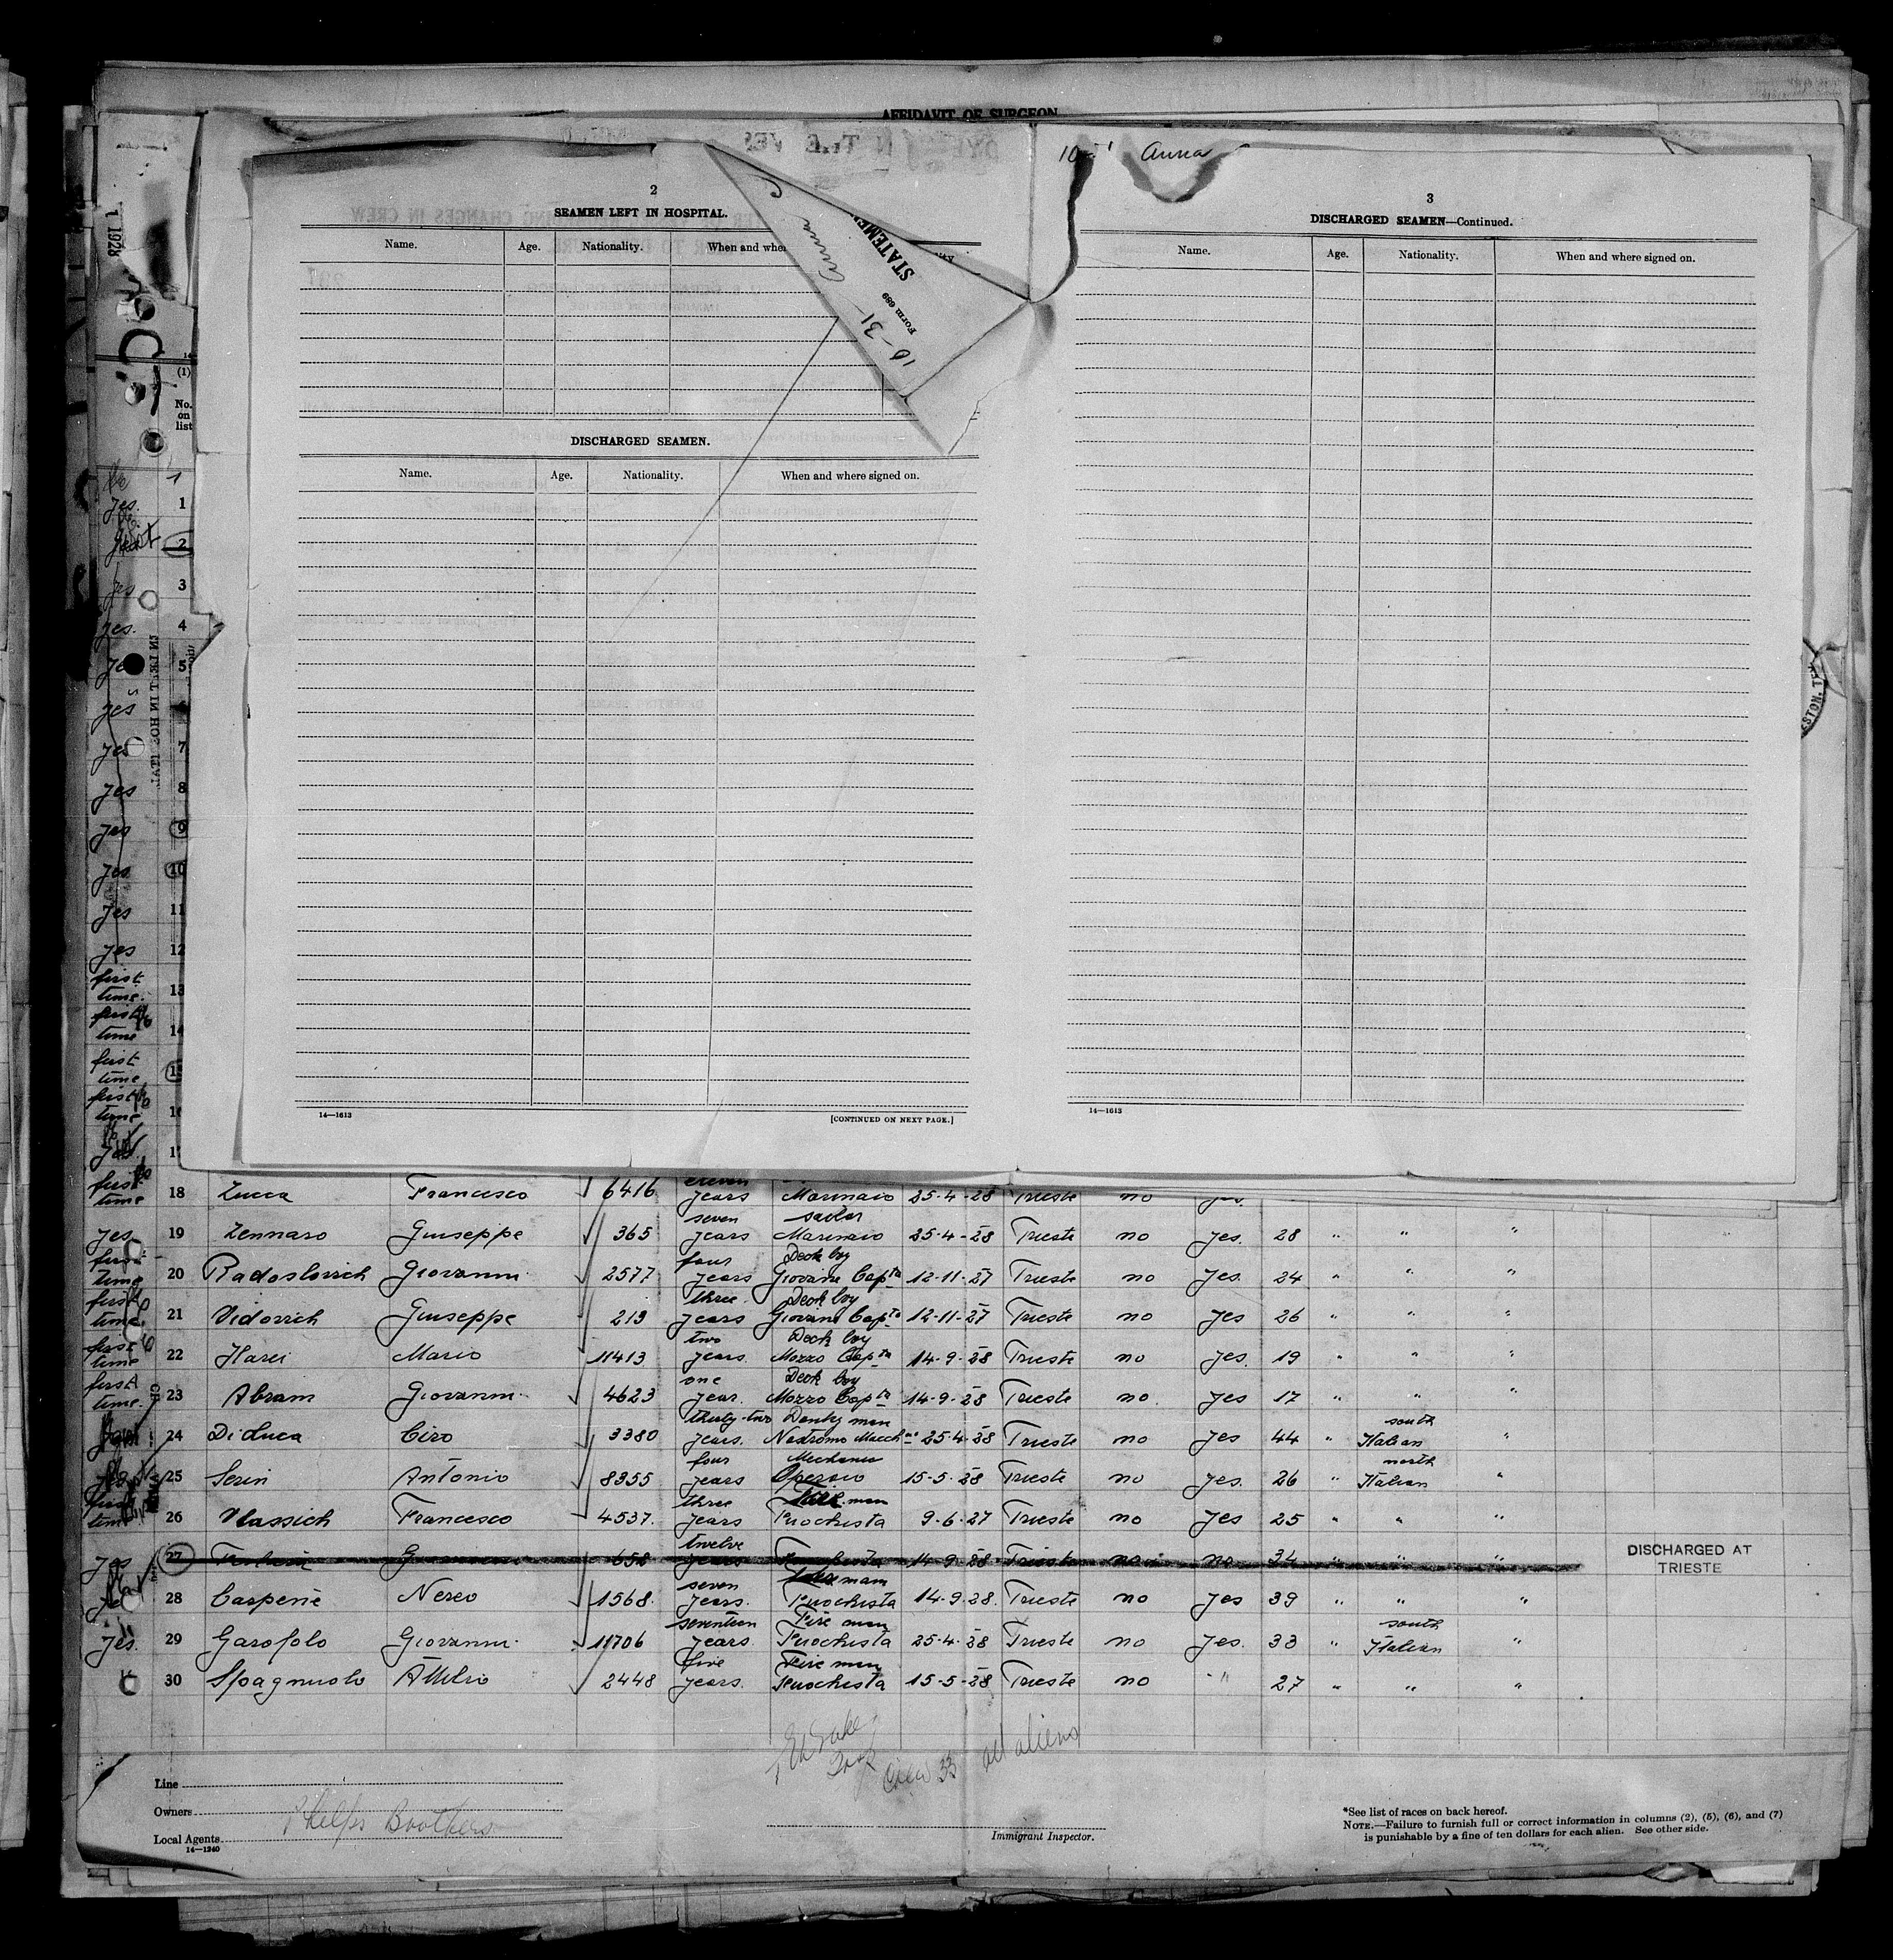 AFFIDAVIT OF SURGEON
10-31 Anna
STATEME
Form 689
10-31- Anna C
2
SEAMEN LEFT IN HOSPITAL.
Name. Age. Nationality. When and whe
DISCHARGED SEAMEN.
Name. Age. Nationality. When and where signed on.
14—1613 [CONTINUED ON NEXT PAGE.]
3
DISCHARGED SEAMEN—Continued.
Name. Age. Nationality. When and where signed on.
14—1613
1 1928
(1)
No.
on
list
yes. 1
2
yes 3
yes. 4
5
yes
yes 7
yes 8
yes 9
yes 10
yes 11
yes 12
first time. 13
first time 14
first time
first time
first time 18 Zucca Francesco 6416 eleven years Marinaio 25-4-28 Trieste no yes.
yes 19 Zennaro Giuseppe 365 seven years sailor Marinaio 25-4-28 Trieste no yes. 28 " " "
first time 20 Radoslovich Giovanni 2577 four years Deck boy Giovane Capta 12-11-27 Trieste no yes. 24 " " "
first time. 21 Vidovich Giuseppe 213 three years Deck boy Giovane Capta 12-11-27 Trieste no yes 26 " " "
first time 22 Mario 11413 two years. Deck boy Mozzo Capta 14-9-28 Trieste no yes. 19 " " "
first time. 23 Abram Giovanni 4623 one year. Deck boy Mozzo Capta 14-9-28 Trieste no. yes 17 " " "
24 Di Luca Ciro 3380 thirty-two years. Donkey man Nostromo Macch 25-4-28 Trieste no yes 44 " south Italian "
25 Serin Antonio 8355 four years Mechanic Operaio 15-5-28 Trieste no yes. 26 " north Italian "
first time 26 Vlassich Francesco 4537. three years Fire man Fuochista 9-6-27 Trieste no yes 25 " " "
yes 27 658 twelve years 14-9-28 Trieste no no 34 " " " DISCHARGED AT
TRIESTE
28 Carpenè Nereo 1568. seven years. Fire man Fuochista 14-9-28. Trieste no yes 39 " " "
yes. 29 Garofolo Giovanni 11706 seventeen years. Fire man Fuochista 25-4-28 Trieste no yes. 33 " south Italian "
30 Spagnuolo Attilio 2448 five years. Fire man Fuochista 15-5-28 Trieste no " 27 " " "
Crew 33 all aliens
Line
Owners
Phelps Brothers
Local Agents
14—1240
Immigrant Inspector.
*See list of races on back hereof.
NOTE.—Failure to furnish full or correct information in columns (2), (5), (6), and (7)
is punishable by a fine of ten dollars for each alien. See other side.